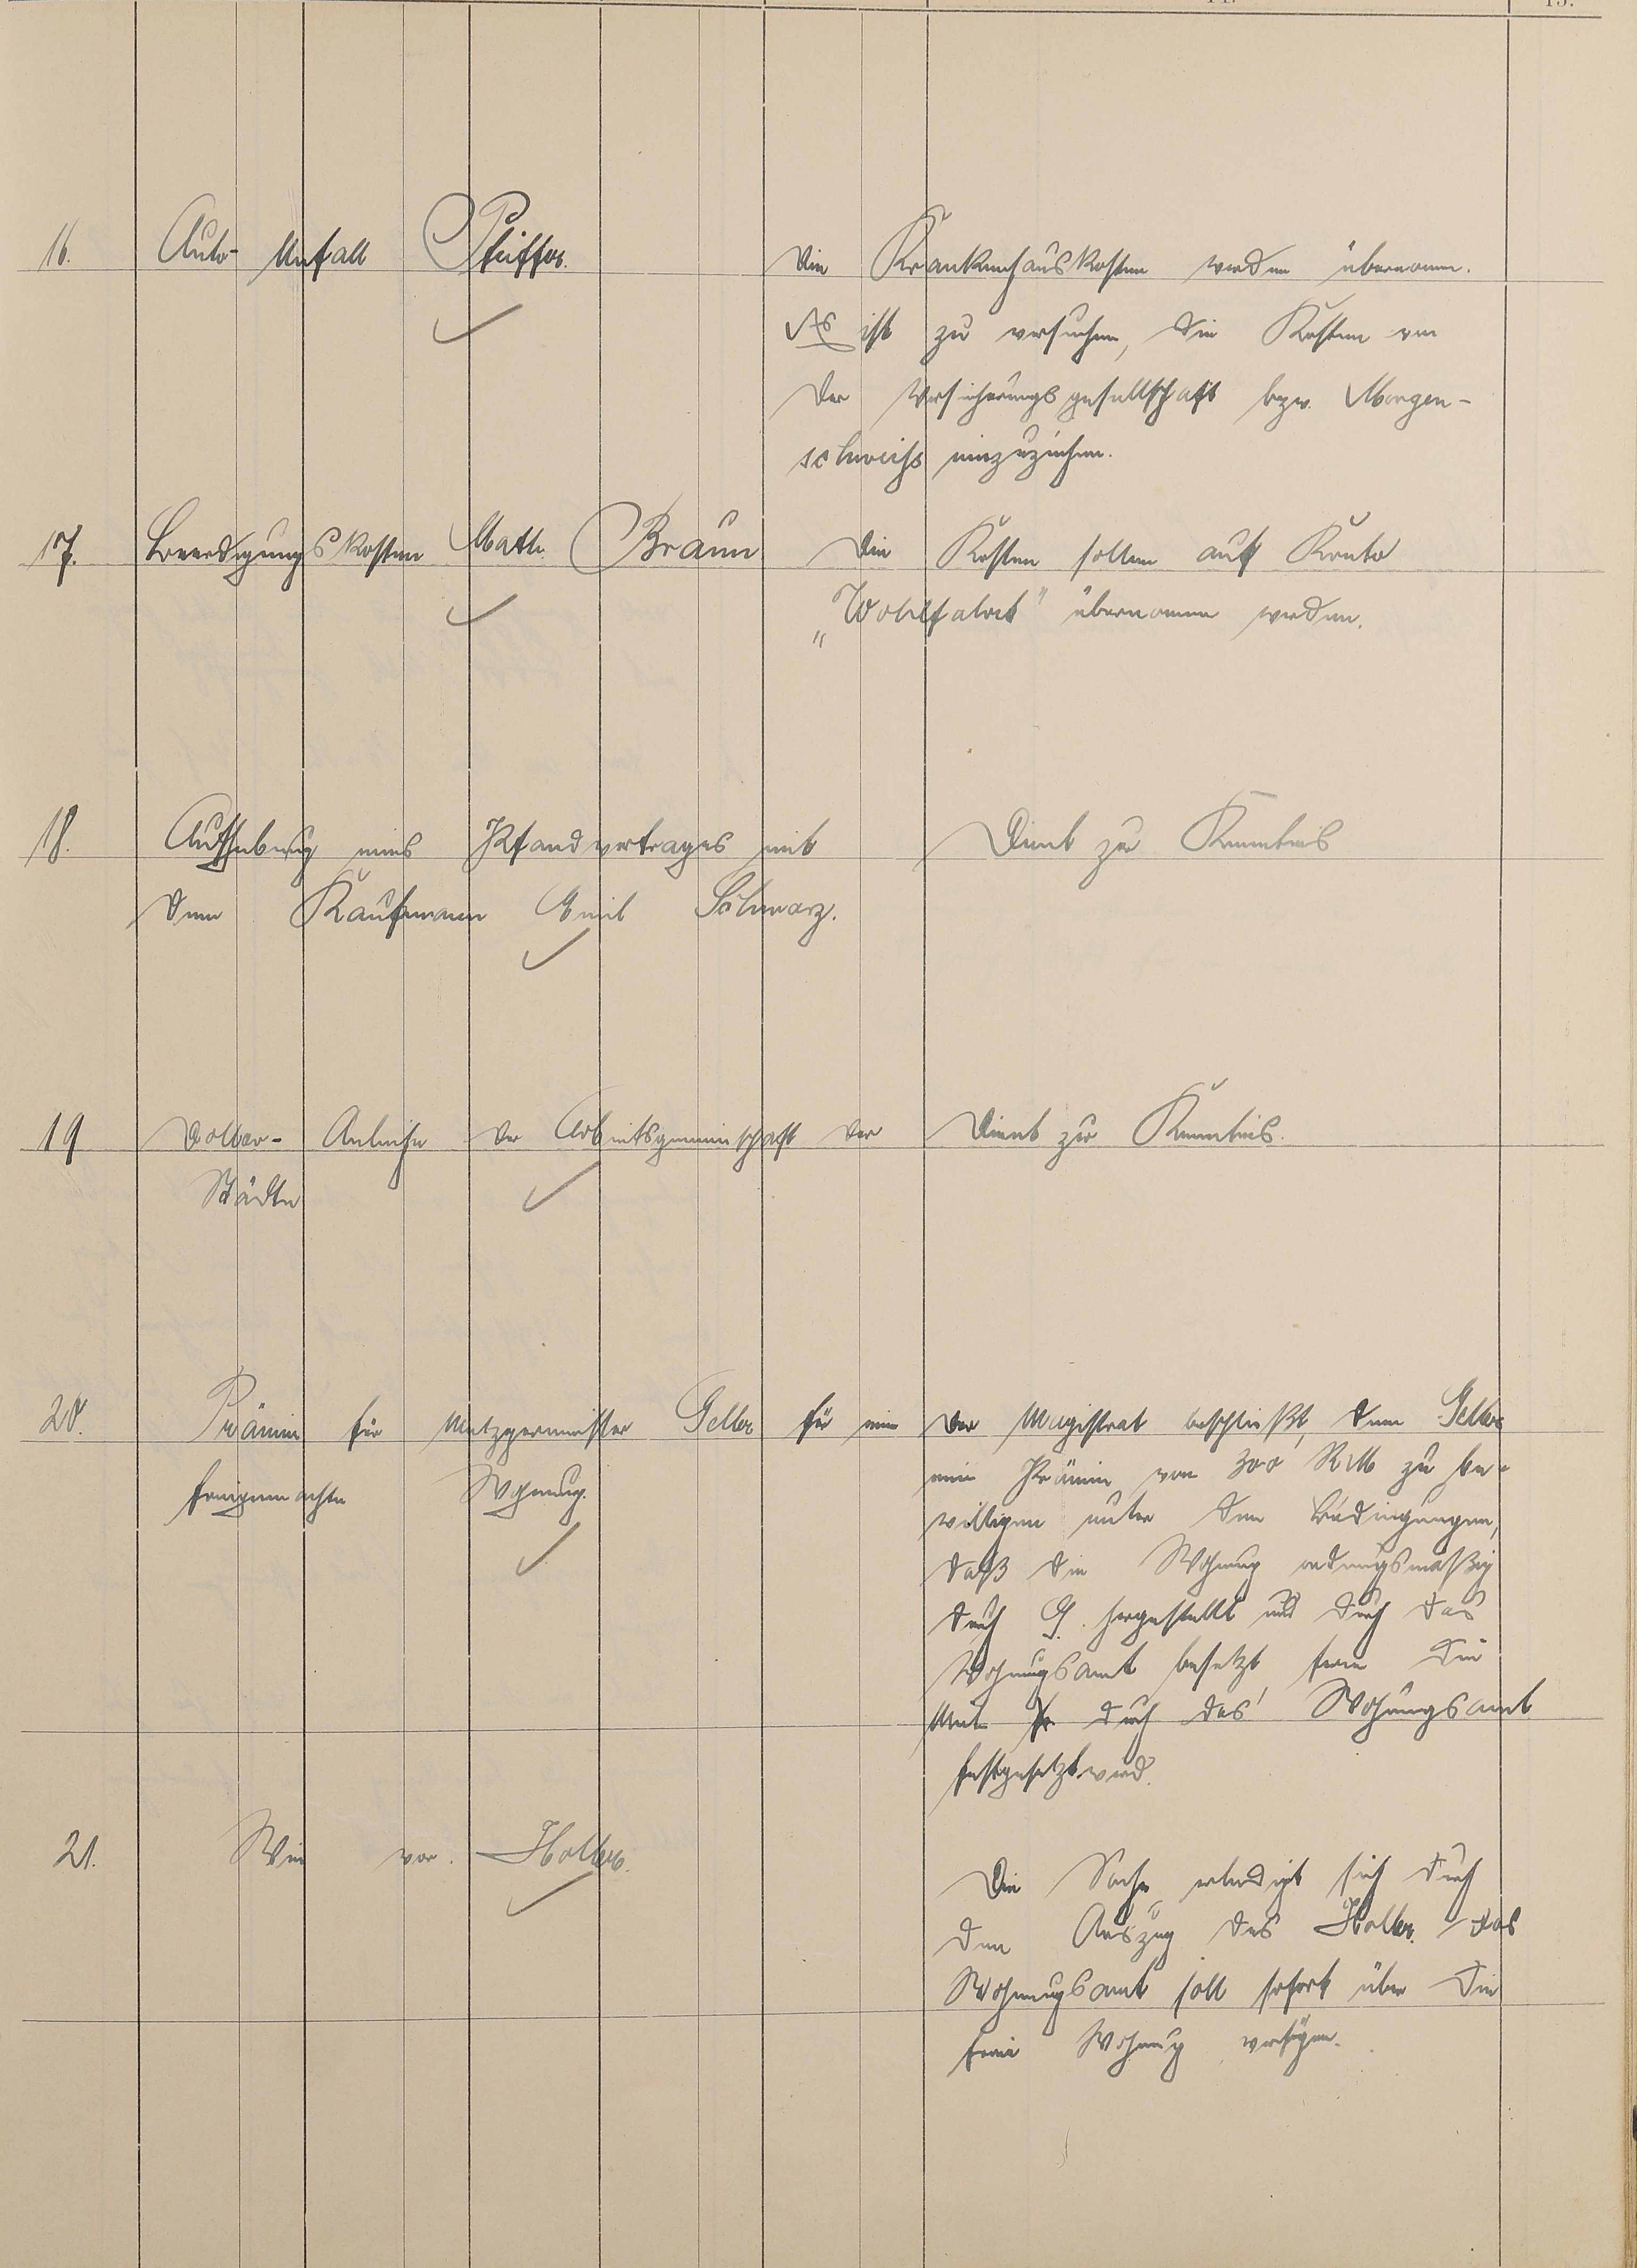 14. 15.
16. Auto- Unfall Pfeiffer. Die Krankenhauskosten werden übernomm.
Es ist zu versuchen, die Kosten von
der Versicherungsgesellschaft bzw. Morgen-
schweiss einzuziehen.
17. Beerdigungskosten Math. Braun Die Kosten sollen auf Konto
„Wohlfahrt" übernommen werden.
18. Aufhebung eines Pfandvertrages mit Dient zur Kenntnis
dem Kaufmann Emil Schwarz.
19 Dollar- Anleihe der Arbeitsgemeinschaft der Dient zur Kenntnis.
Städte
20. Prämie für Metzgermeister Geller für eine Der Magistrat beschließt, dem Geller
freigemachte Wohnung. eine Prämie von 300 RM zu be-
willigen unter den Bedingungen,
daß die Wohnung ordnungsmäßig
durch G. hergestellt und durch das
Wohnungsamt besetzt sowie die
Miete durch das Wohnungsamt
festgesetzt wird.
21. Wie vor. Holler. Die Sache erledigt sich durch
den Auszug des Holler. Das
Wohnungsamt soll sofort über die
freie Wohnung verfügen.